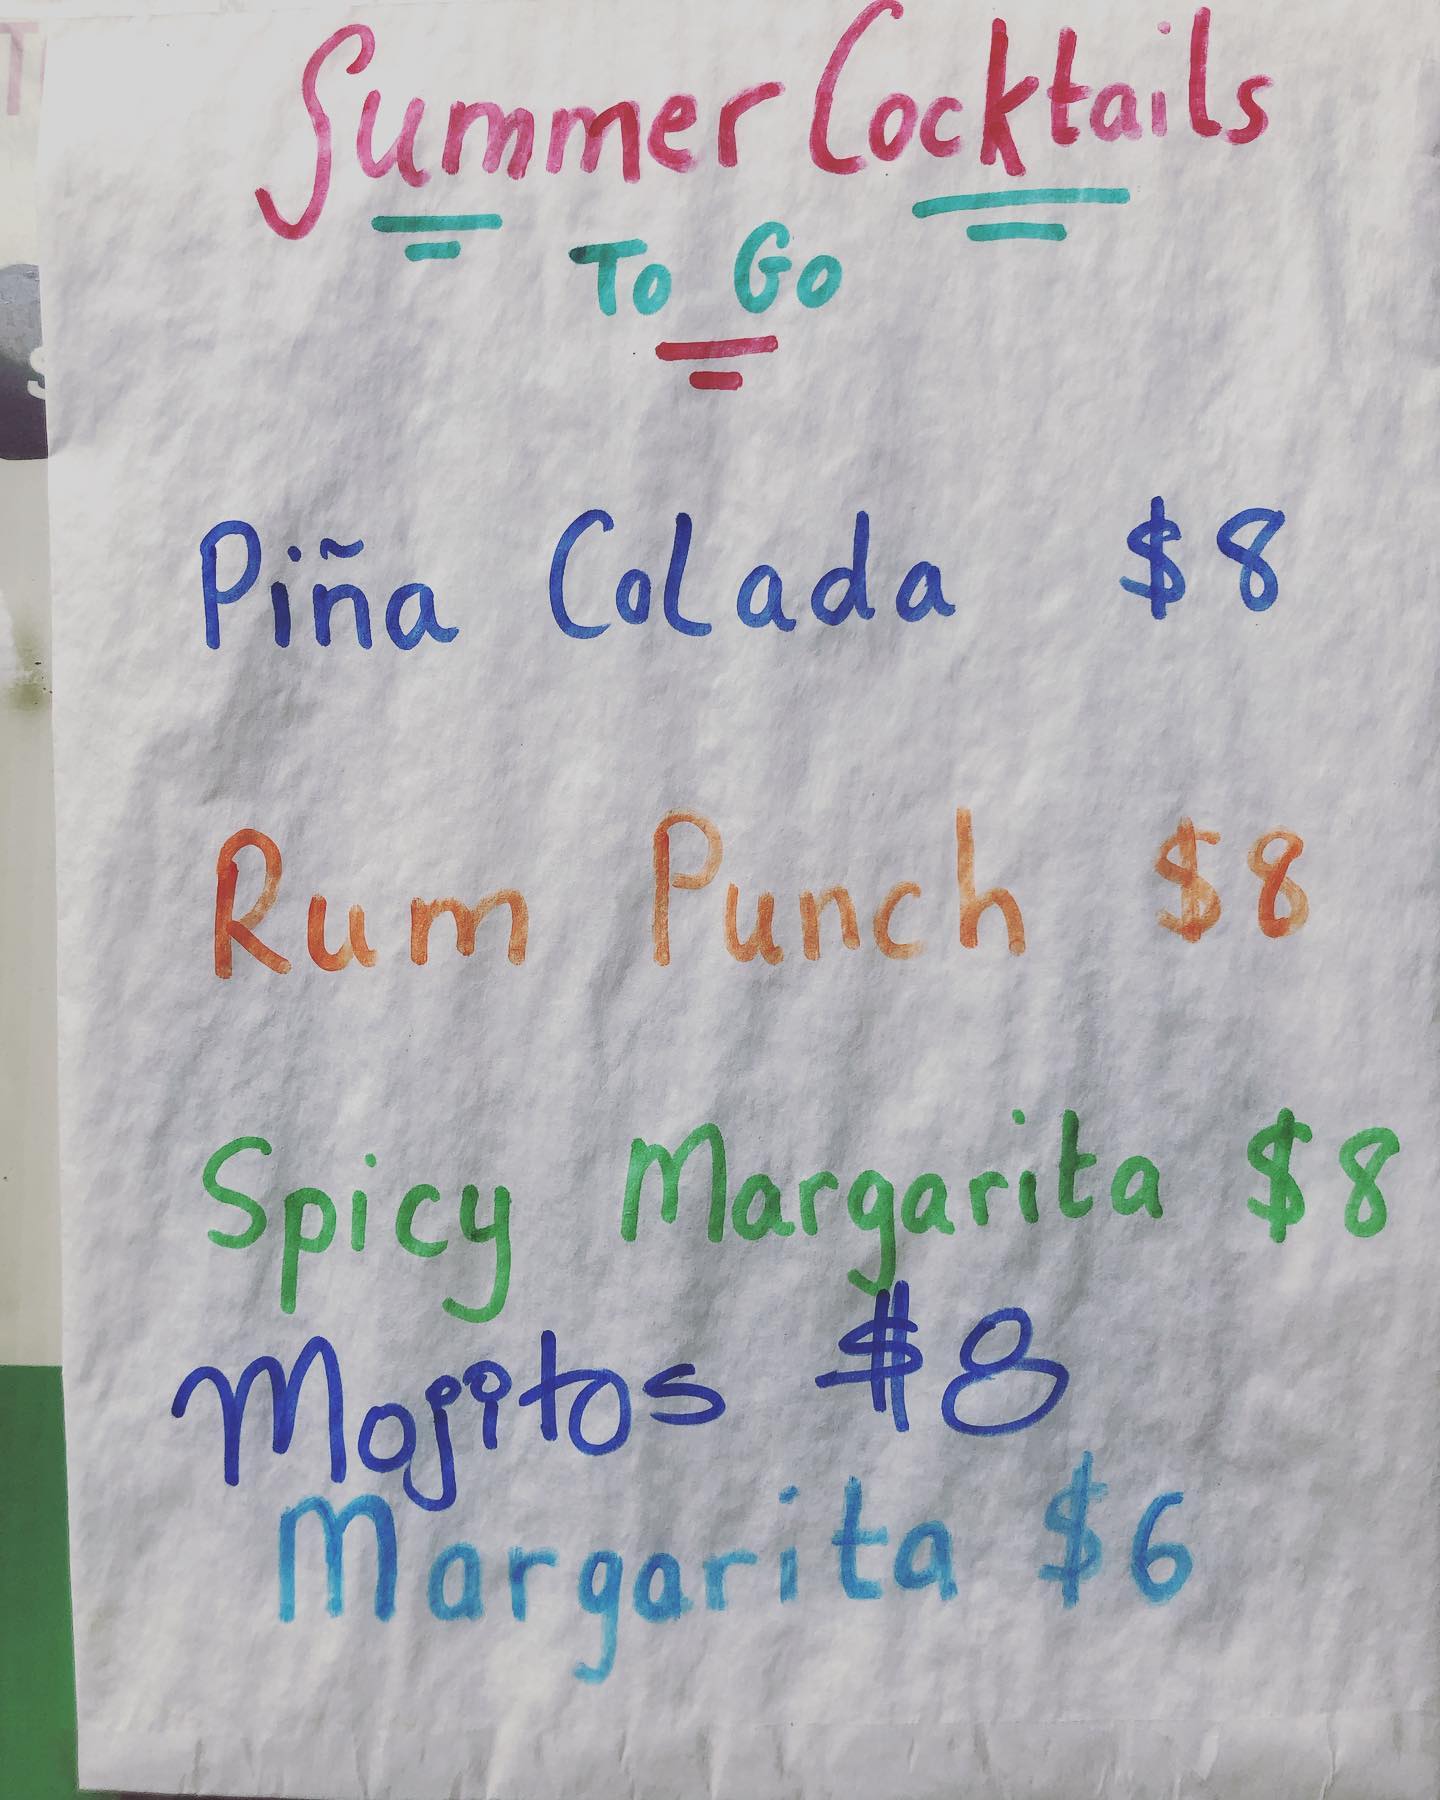 Summer Cocktails
To Go
Piña Colada $8
Rum Punch $8
Spicy Margarita $8
Mojitos $8
Margarita $6